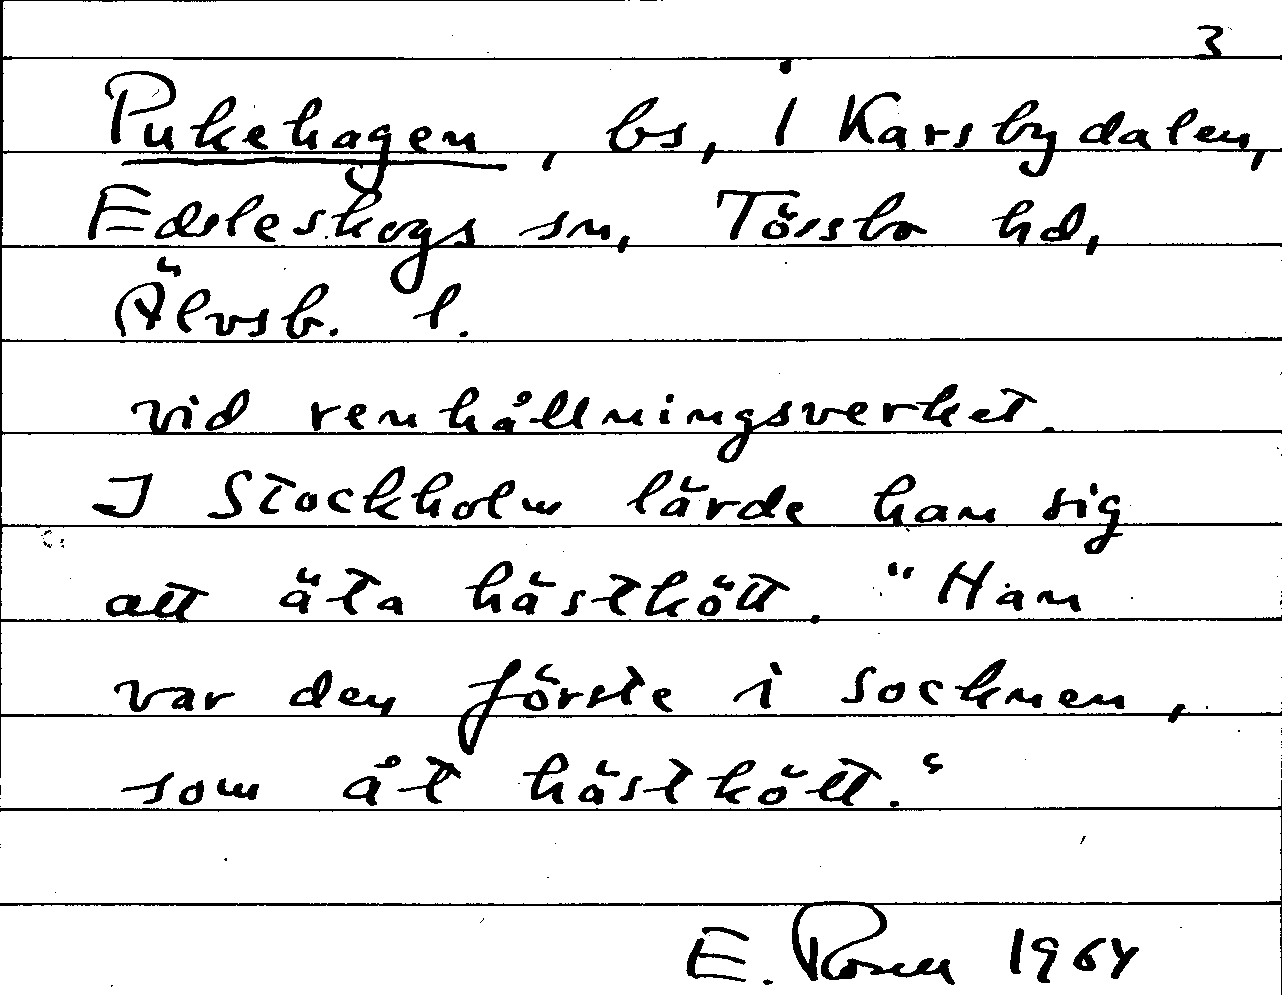 3
Pukehagen, bs, i Karsbydalen,
Edsleskogs sn, Tössbo hd,
Älvsb. l.
vid renhållningsverket.
I Stockholm lärde han sig
att äta hästkött. "Han
var den förste i socknen,
som åt hästkött."
E. Rosen 1964